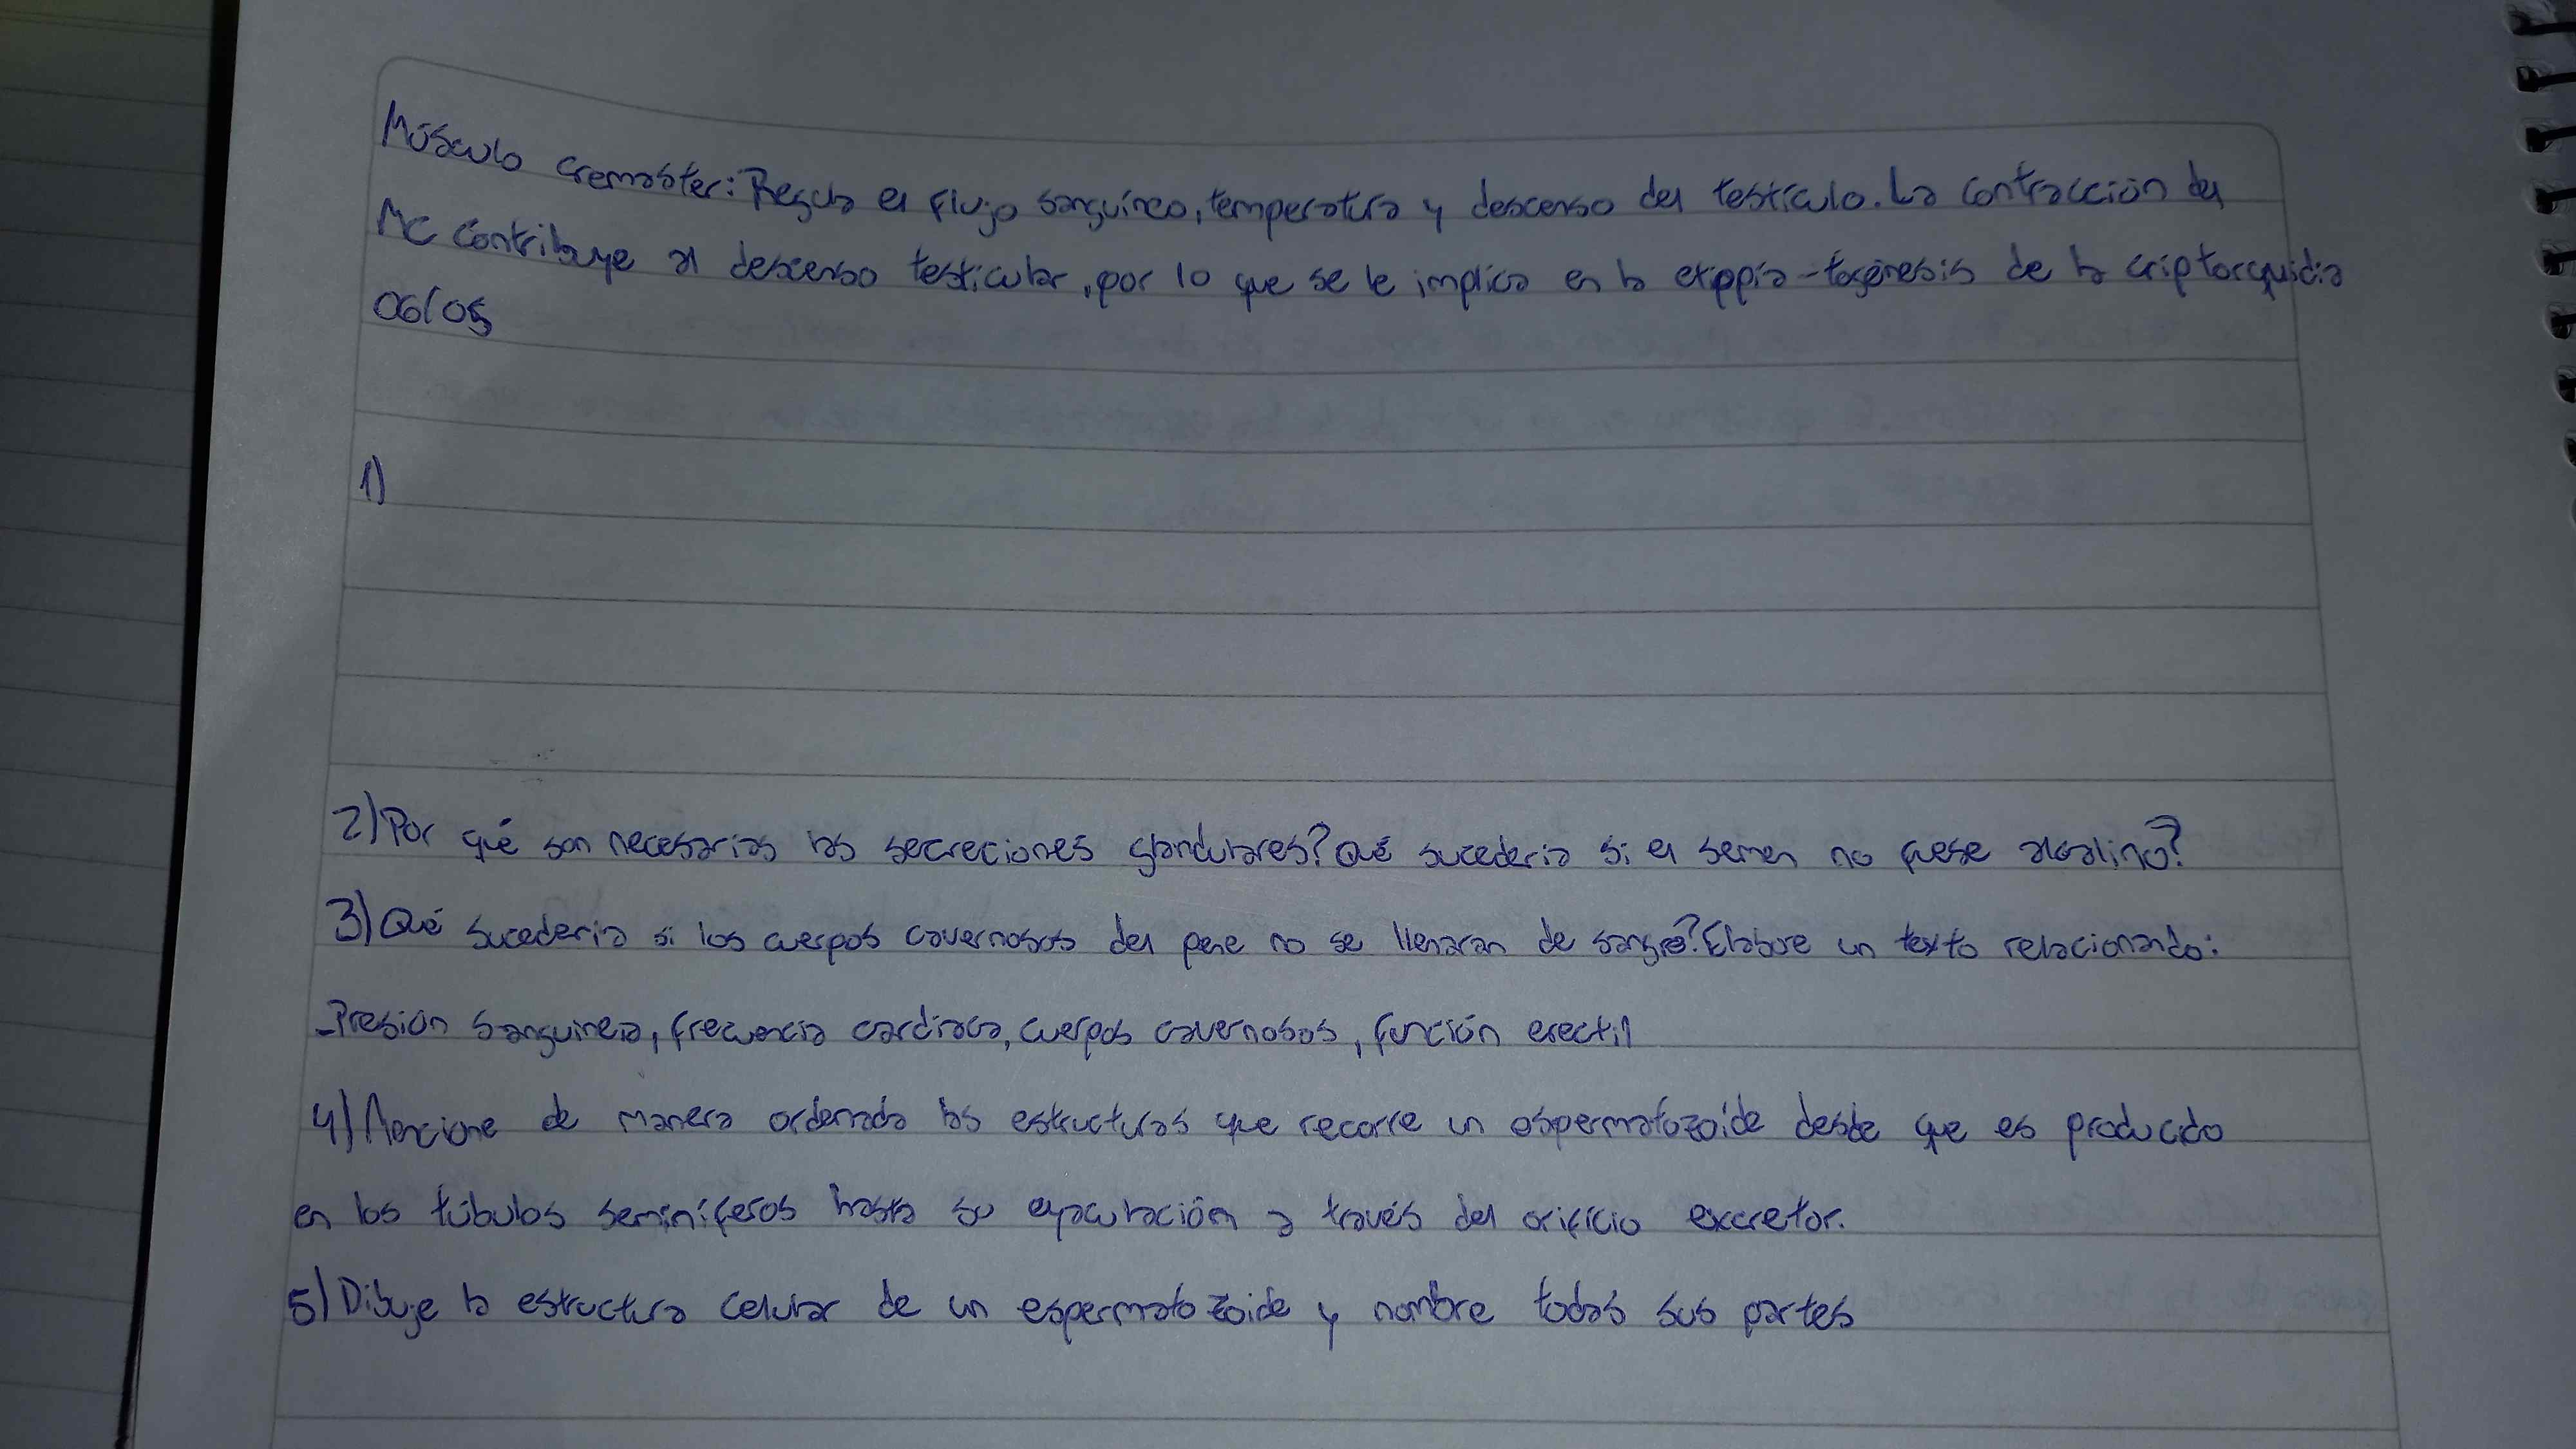 Músculo cremaster: Regula el flujo sanguíneo, temperatura y descenso del testículo. La contracción del
MC contribuye al descenso testicular, por lo que se le implica en la de la criptorquidia
06/05
1)
2) Por qué son necesarias las secreciones glandulares? Qué sucederia si el semen no fuese alcalino?
3) Qué sucederia si los cuerpos cavernosos del pene no se llenaran de sangre? Elabore un texto relacionando:
-Presión sanguinea, frecuencia cardiaca, cuerpos cavernosos, función erectil
4) Mencione de manera ordenada las estructuras que recorre un espermatozoide desde que es producido
en los túbulos seminíferos hasta su eyaculación a través del orificio excretor.
5) Dibuje la estructura celular de un espermatozoide y nombre todas sus partes